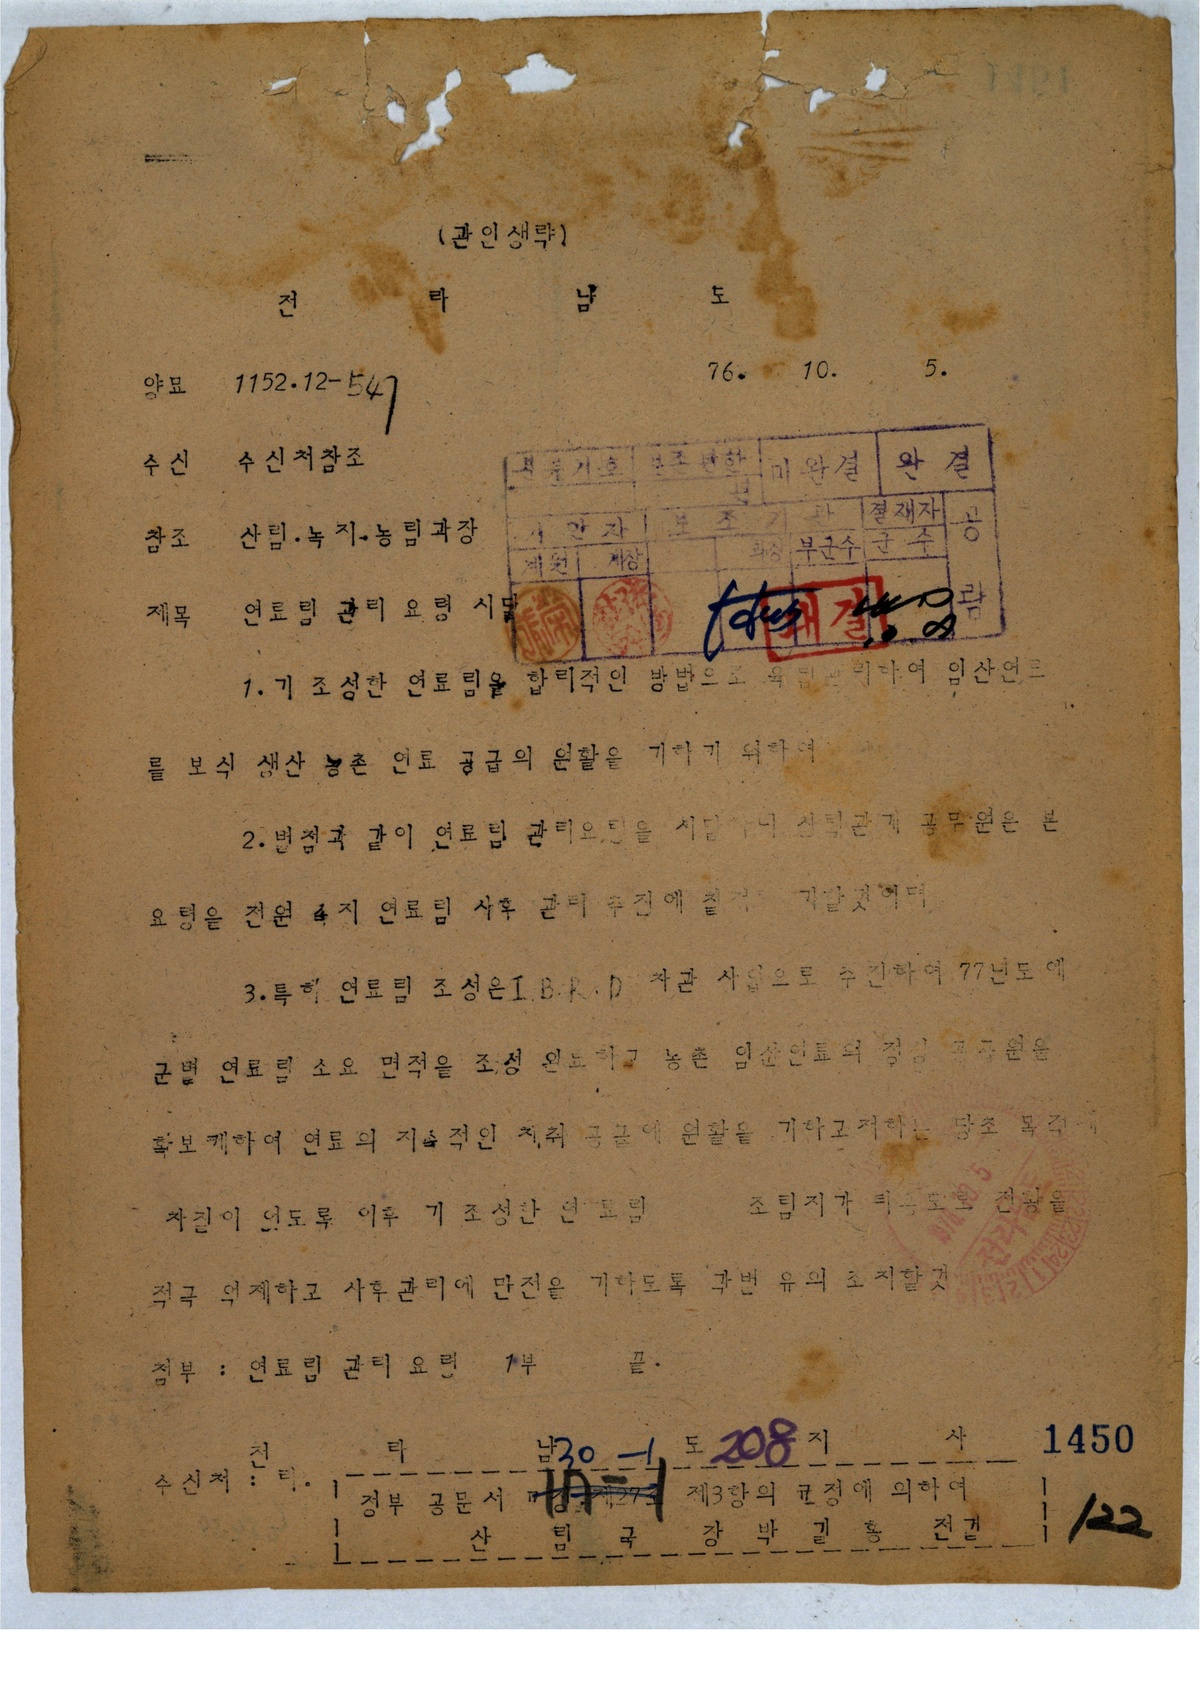 (관인생략)
전 라 남 도
양묘 1152.12-547 76. 10. 5.
수신 수신처참조
참조 산림.녹지.농림과장
제목 연료림 관리 요령 시달
미완결 완결
기안자 보조기관 결재자 공람
계원 계장 과장 부군수 군수
1.기 조성한 연료림을 합리적인 방법으로 육림관리하여 임산연료
를 보식 생산 농촌 연료 공급의 원활을 기하기 위하여
2.별첨과 같이 연료림 관리요령을 시달하니 산림관계 공무원은 본
요령을 전원 숙지 연료림 사후 관리 추진에 철저를 기할것이며
3.특히 연료림 조성은 I.B.R.D 차관 사업으로 추진하여 77년도에
군별 연료림 소요 면적을 조성 완료하고 농촌 임산연료의 공급원을
확보케하여 연료의 지속적인 채취 공급에 원활을 기하고저하는 당초 목적에
차질이 없도록 이후 기 조성한 연료림 조림지가 타용도로 전환을
적극 억제하고 사후관리에 만전을 기하도록 각별 유의 조치할것
첨부 : 연료림 관리 요령 1부 끝.
전 라 남 도 지 사
30-1 208 1450
수신처 : 타.
정부 공문서 제3항의 규정에 의하여
산 림 국 장 박 길 홍 전결
122